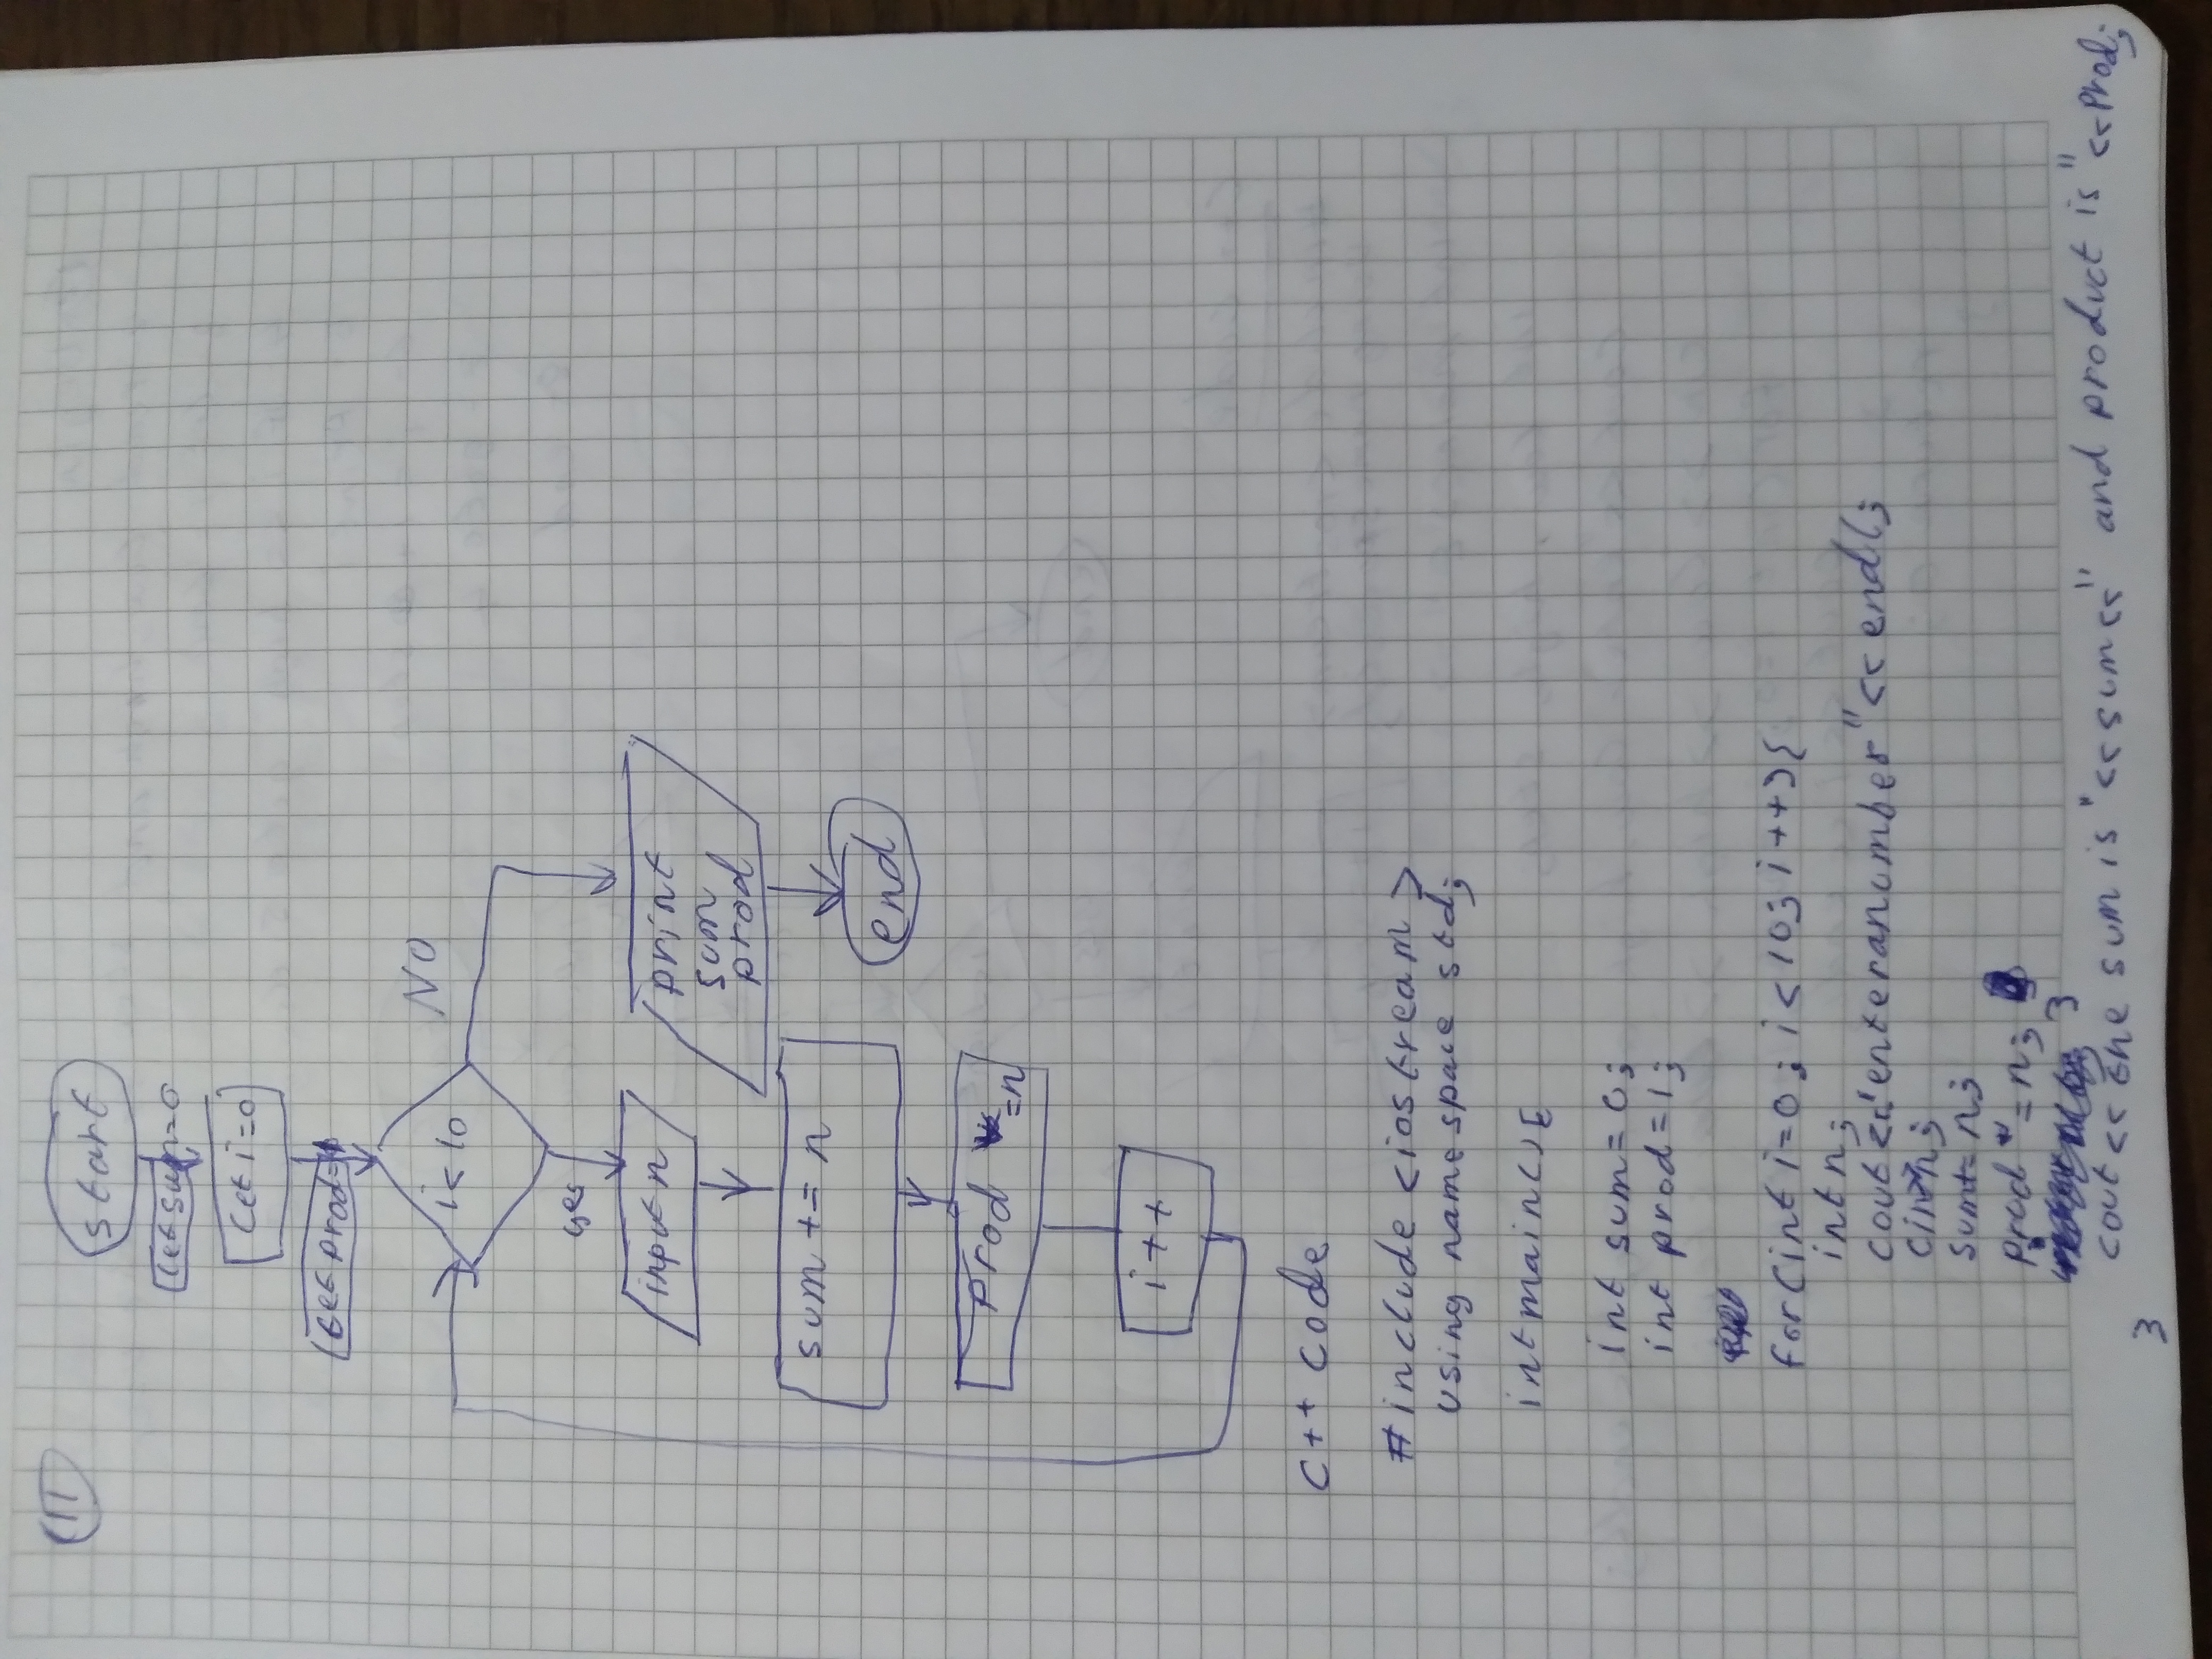 11
start
let sum=0
let i=0
let prod=1
i<10
NO
yes
input n
print
sum
prod
sum += n
end
prod *=n
i++
c++ code
#include <iostream>
using namespace std;
int main(){
int sum=0;
int prod=1;
for(int i=0; i<10; i++){
int n;
cout<<"enter a number"<<endl;
cin>>n;
sum+=n;
prod *=n;
}
cout<< the sum is "<<sum<<" and product is "<<prod;
}